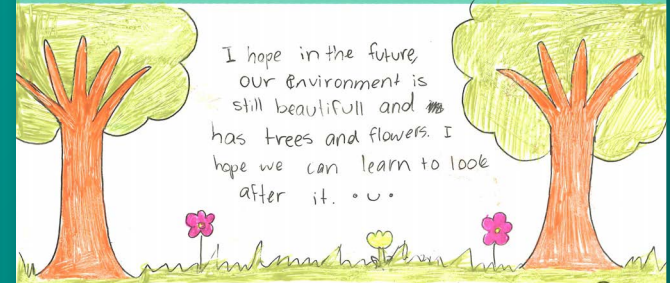 I hope in the future,
our environment is
still beautifull and
has trees and flowers. I
hope we can learn to look
after it. • ᴗ •